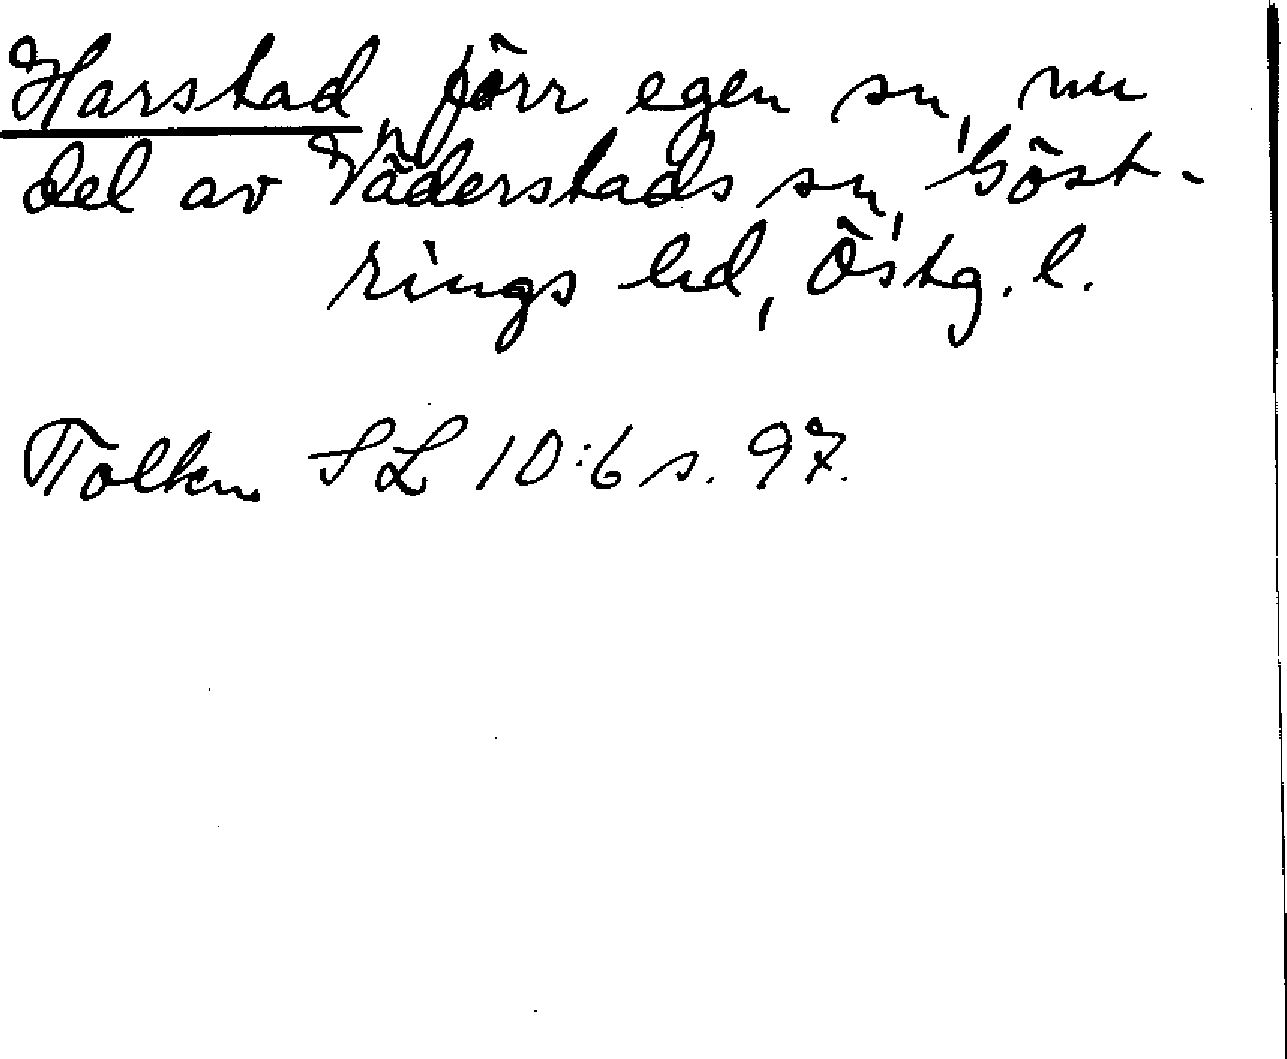 Harstad, förr egen sn, nu
del av Väderstads sn, Göst-
rings hd, Östg. l.
Tolkn. SL 10:6 s. 97.